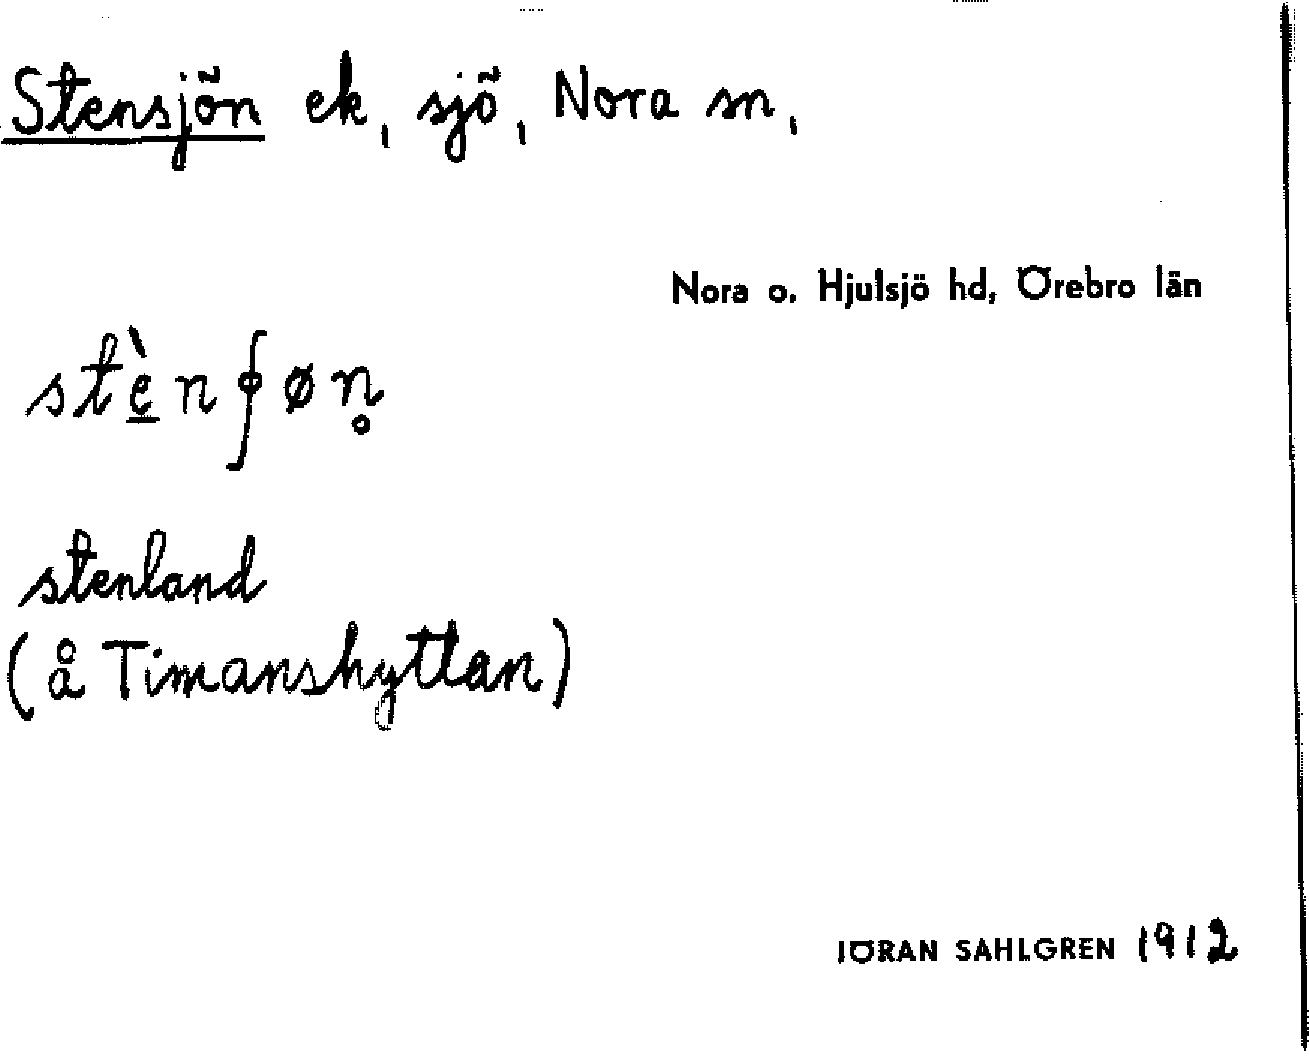 Stensjön ek, sjö, Nora sn,
Nora o. Hjulsjö hd, Örebro län
stenland
(å Timanshyttan)
JÖRAN SAHLGREN 1912